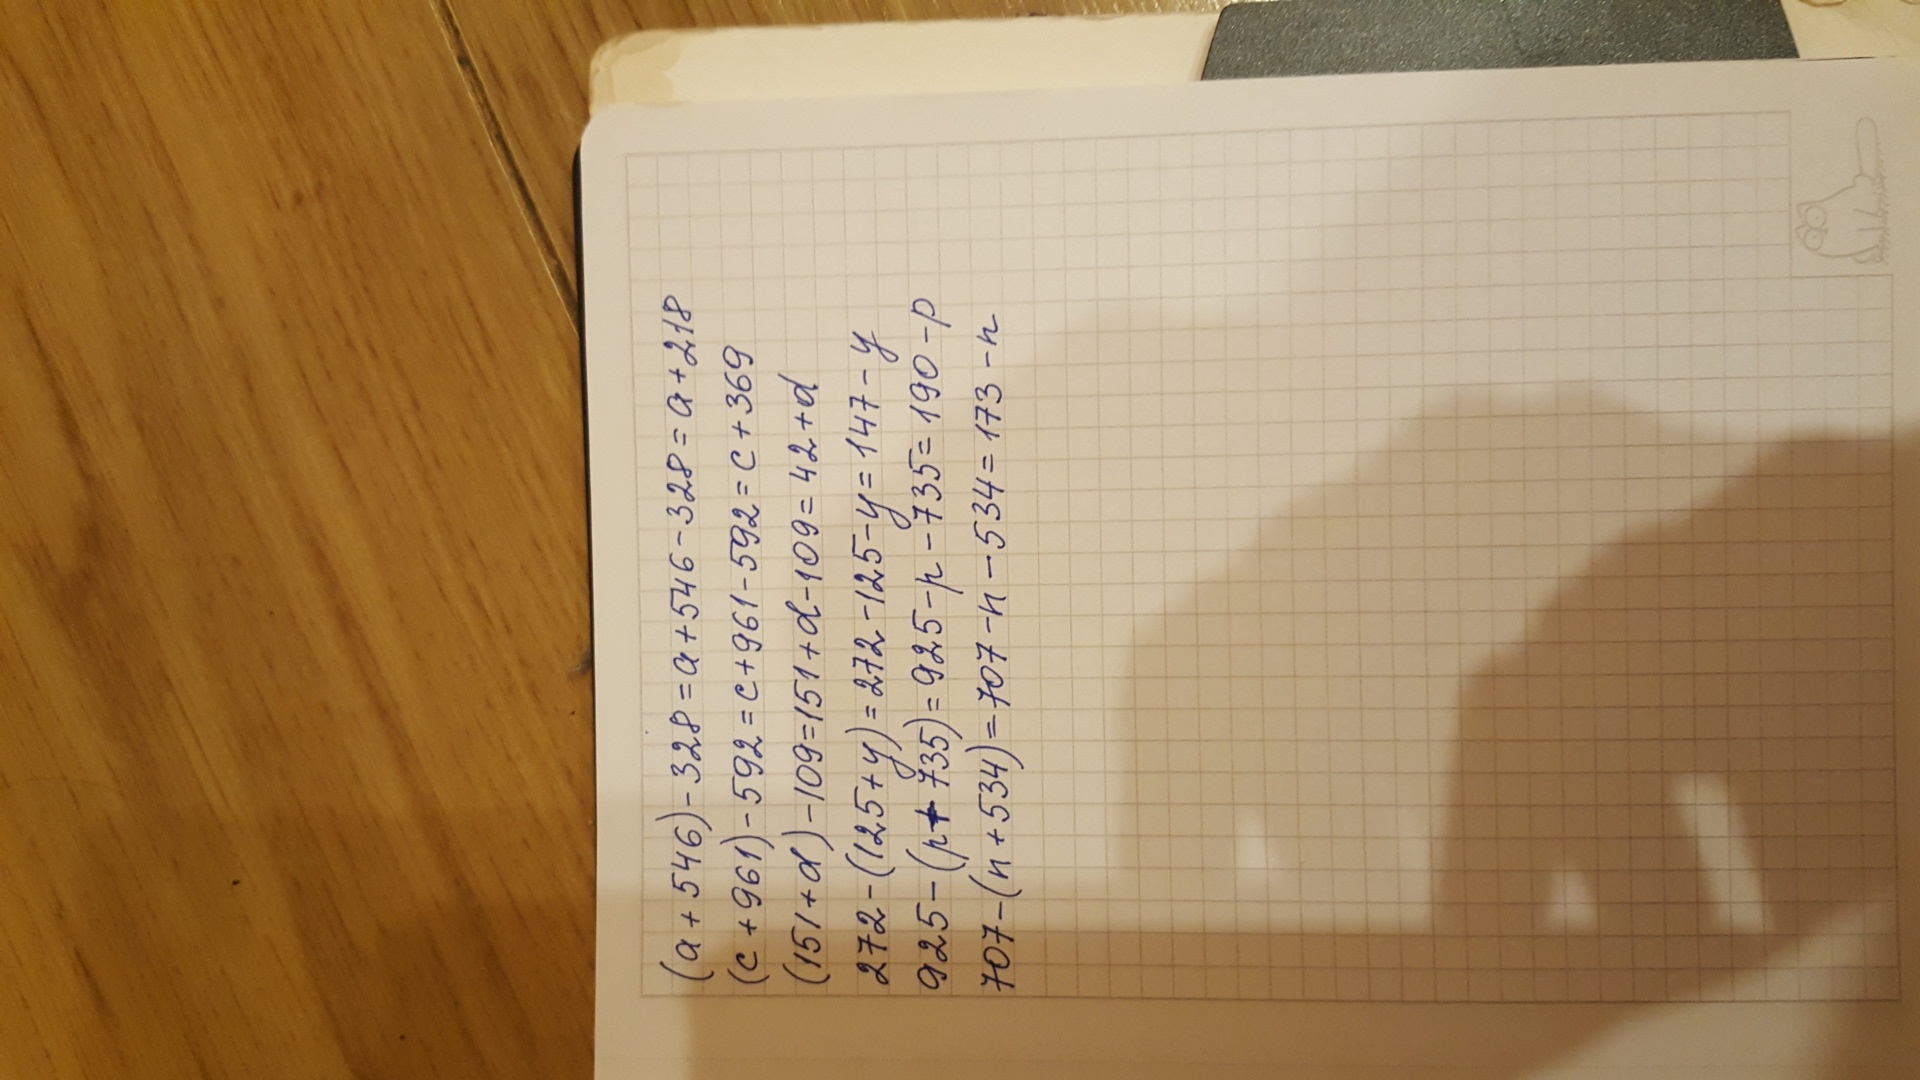 (a+546)-328=a+546-328=a+218
(c+961)-592=c+961-592=c+369
(151+d)-109=151+d-109=42+d
272-(125+y)=272-125-y=147-y
925-(p+735)=925-p-735=190-p
707-(n+534)=707-n-534=173-n